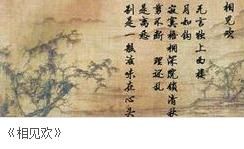 相见欢
无言独上西楼
月如钩
寂寞梧桐深院锁清秋
剪不断 理还乱
是离愁
别是一般滋味在心头
《相见欢》